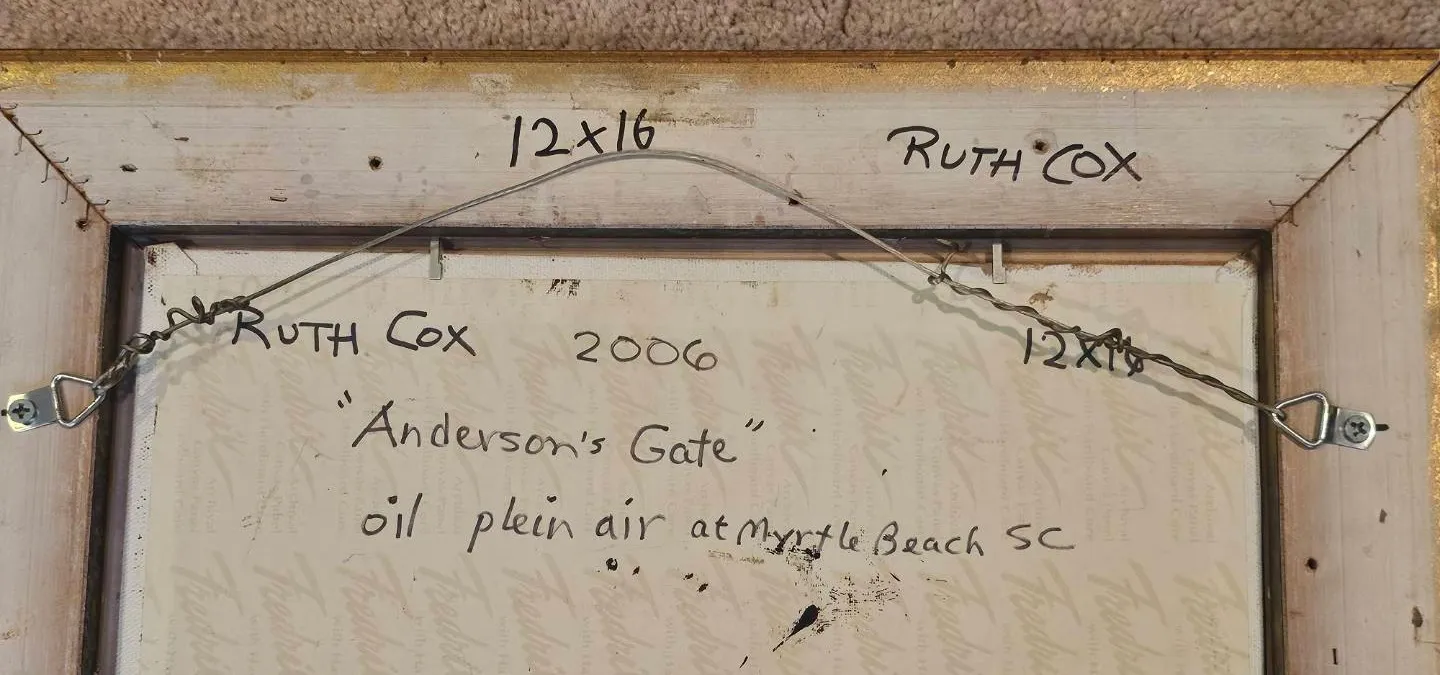 12x16
RUTH COX
RUTH COX 2006 12x16
"Anderson's Gate"
oil plein air at Myrtle Beach SC